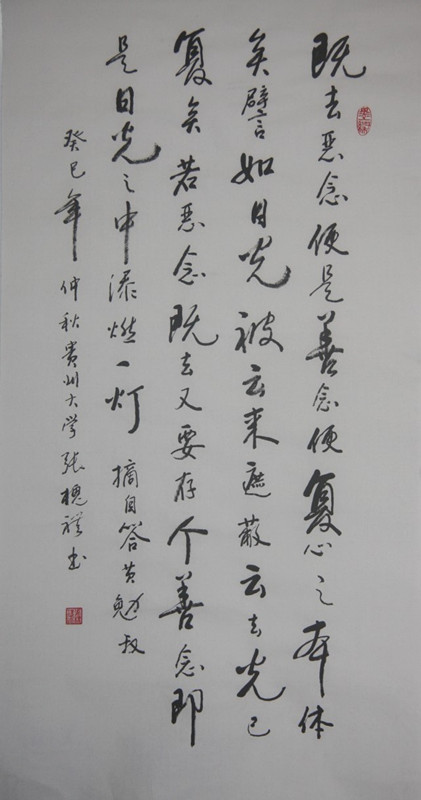 既去恶念便是善念便复心之本体
矣譬如日光被云来遮蔽云去光已
复矣若恶念既去又要存个善念即
是日光之中添燃一灯 摘自答黄勉叔
癸巳年仲秋贵州大学张槐祥书